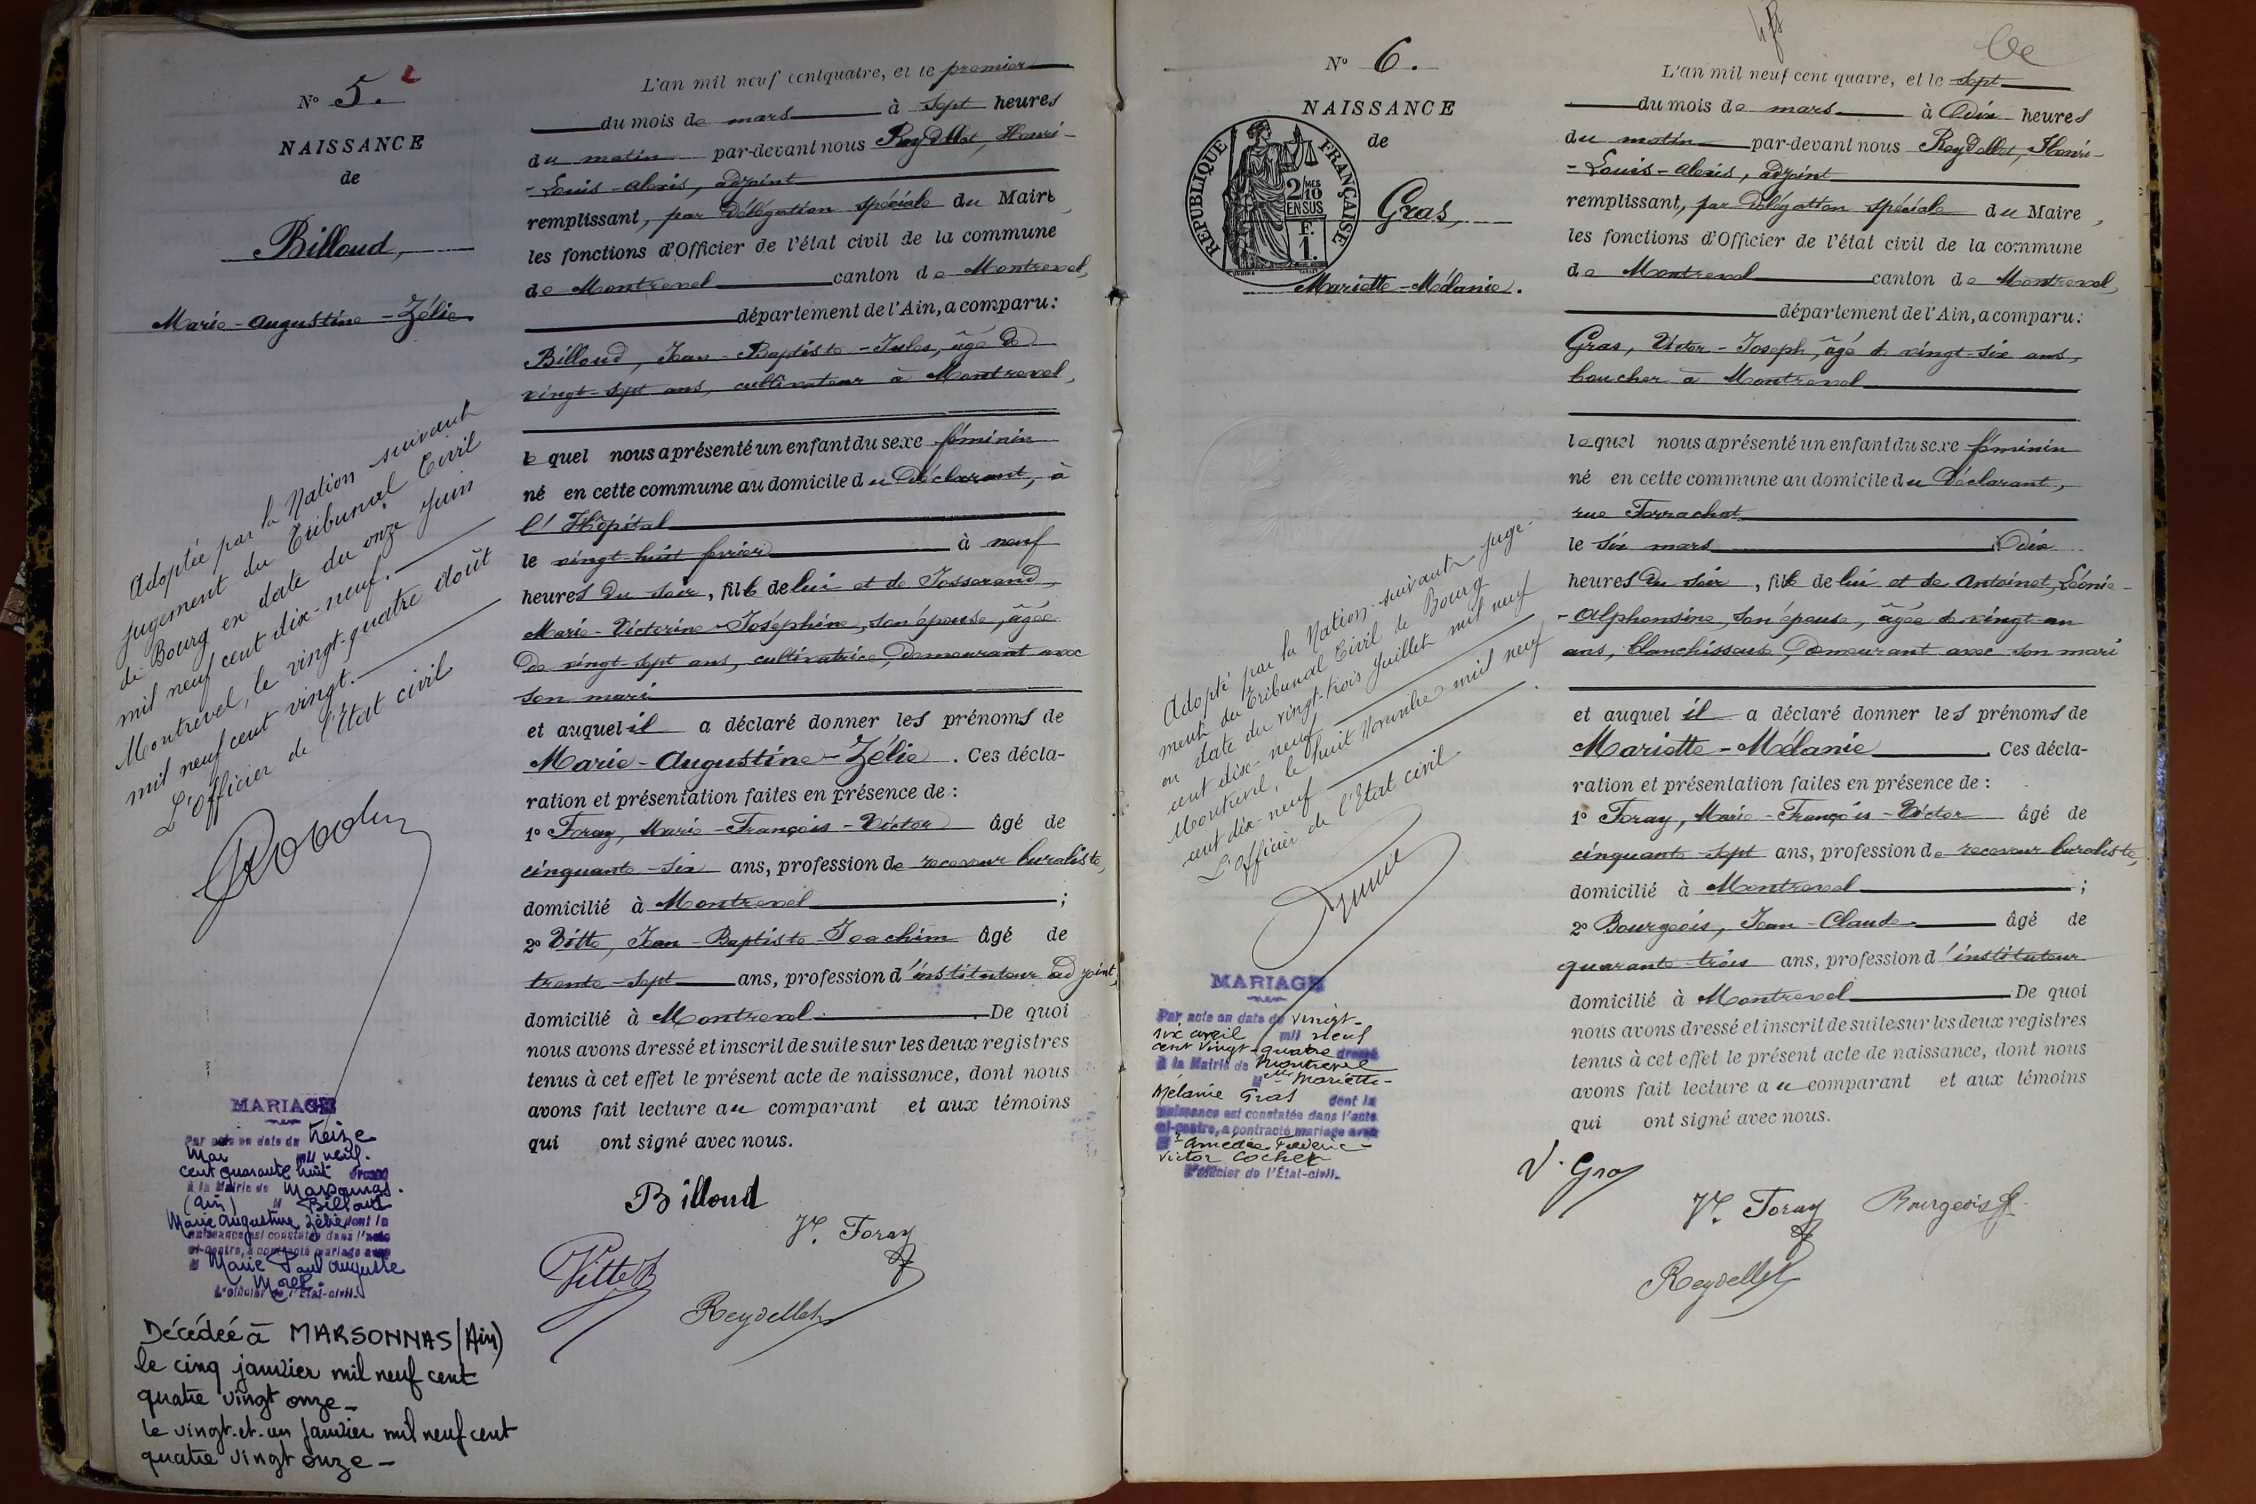 N° 5.
NAISSANCE
de
Billoud,
Marie-Augustine-Zélie
Adoptée par la Nation suivant
jugement du Tribunal Civil
de Bourg en date du onze Juin
mil neuf cent dix-neuf.
Montrevel, le vingt-quatre août
mil neuf cent vingt.
L'Officier de l'Etat civil
MARIAGE
Par acte en date du treize
Mai mil neuf
cent quarante huit dressé
à la Mairie de Marsonnas.
(Ain) M Billoud
Marie Augustine Zélie dont la
naissance est constatée dans l'acte
ci-contre, a contracté mariage avec
M Marie Paul Auguste
Morel
L'officier de l'État-civil.
Décédée à MARSONNAS (Ain)
le cinq janvier mil neuf cent
quatre vingt onze_
le vingt.et.un janvier mil neuf cent
quatre vingt onze_
L'an mil neuf cent quatre, et le premier
du mois de mars à sept heures
du matin par-devant nous Reydellet, Henri-
-Louis-Alexis, adjoint
remplissant, par délégation spéciale du Maire,
les fonctions d'Officier de l'état civil de la commune
de Montrevel canton de Montrevel,
département de l'Ain, a comparu:
Billoud, Jean-Baptiste-Jules, âgé de
vingt-sept ans, cultivateur à Montrevel,
lequel nous a présenté un enfant du sexe féminin
né en cette commune au domicile du déclarant, à
l'Hôpital
le vingt-huit février à neuf
heures du soir, fille de lui et de Josserand,
Marie-Victorine-Joséphine, son épouse, âgée
de vingt-sept ans, cultivatrice, demeurant avec
son mari
et auquel il a déclaré donner les prénoms de
Marie-Augustine-Zélie. Ces décla-
ration et présentation faites en présence de :
1° Foray, Marie-François-Victor âgé de
cinquante-six ans, profession de receveur buraliste,
domicilié à Montrevel ;
2° Vitte, Jean-Baptiste-Joachim âgé de
trente-sept ans, profession d'instituteur adjoint,
domicilié à Montrevel. De quoi
nous avons dressé et inscrit de suite sur les deux registres
tenus à cet effet le présent acte de naissance, dont nous
avons fait lecture au comparant et aux témoins
qui ont signé avec nous.
Billoud
Vr. Foray
Vitte B
Reydellet
N° 6.
NAISSANCE
de
RÉPUBLIQUE FRANÇAISE
2/10
EN SUS
F.
1.
Gras,
Mariette-Mélanie.
Adopté par la Nation suivant juge-
ment du Tribunal Civil de Bourg
en date du vingt-trois Juillet mil neuf
cent dix-neuf
Montrevel, le huit Novembre mil neuf
cent dix-neuf
L'Officier de l'Etat civil
MARIAGE
Par acte en date du vingt-
six avril mil neuf
cent vingt-quatre dressé
à la Mairie de Montrevel
Melle Mariette-
Mélanie Gras dont la
naissance est constatée dans l'acte
ci-contre, a contracté mariage avec
Mr Amédée Frédéric-
Victor Cochet
L'officier de l'État-civil.
L'an mil neuf cent quatre, et le sept
du mois de mars à dix heures
du matin par-devant nous Reydellet, Henri-
-Louis-Alexis, adjoint
remplissant, par délégation spéciale du Maire,
les fonctions d'Officier de l'état civil de la commune
de Montrevel canton de Montrevel,
département de l'Ain, a comparu:
Gras, Victor-Joseph, âgé de vingt-six ans,
boucher à Montrevel
lequel nous a présenté un enfant du sexe féminin
né en cette commune au domicile du déclarant,
rue Ferrachat
le six mars à dix
heures du soir, fille de lui et de Antoinet, Léonie-
-Alphonsine, son épouse, âgée de vingt-un
ans, blanchisseuse, demeurant avec son mari
et auquel il a déclaré donner les prénoms de
Mariette-Mélanie. Ces décla-
ration et présentation faites en présence de :
1° Foray, Marie-François-Victor âgé de
cinquante-sept ans, profession de receveur buraliste,
domicilié à Montrevel ;
2° Bourgeois, Jean-Claude âgé de
quarante-trois ans, profession d'instituteur
domicilié à Montrevel De quoi
nous avons dressé et inscrit de suite sur les deux registres
tenus à cet effet le présent acte de naissance, dont nous
avons fait lecture au comparant et aux témoins
qui ont signé avec nous.
V. Gras
Vr. Foray
Bourgeois
Reydellet